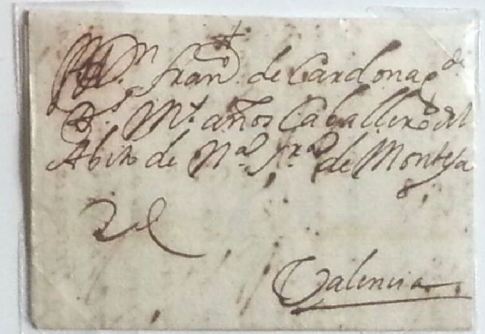 A Dn Franco de Cardona gde
Ds Ms años Caballero del
Abito de Na Sra de Montesa
Valencia